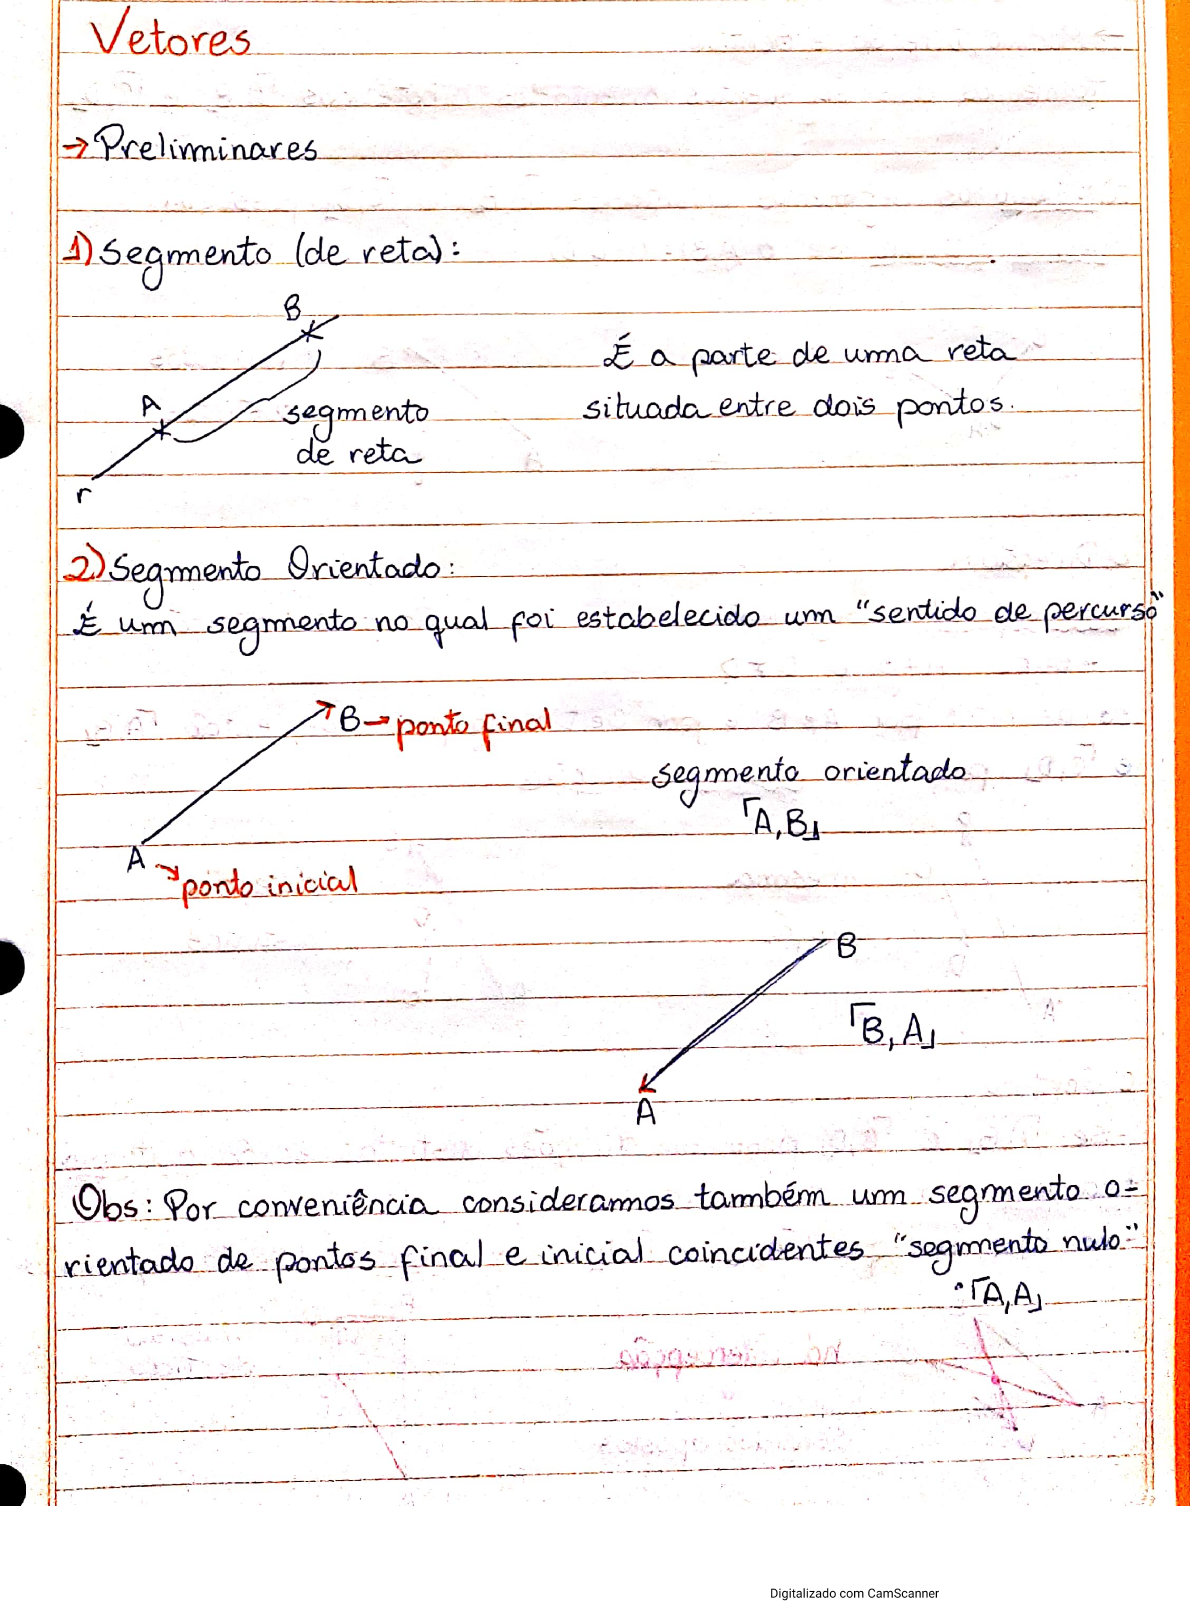 Vetores
→ Preliminares
1) Segmento (de reta):
B
É a parte de uma reta
A
segmento
situada entre dois pontos.
de reta
r
2) Segmento Orientado:
É um segmento no qual foi estabelecido um "sentido de percurso"
B → ponto final
segmento orientado
「A, B」
A → ponto inicial
B
「B, A」
A
Obs: Por conveniência consideramos também um segmento o-
rientado de pontos final e inicial coincidentes "segmento nulo"
「A, A」
Digitalizado com CamScanner